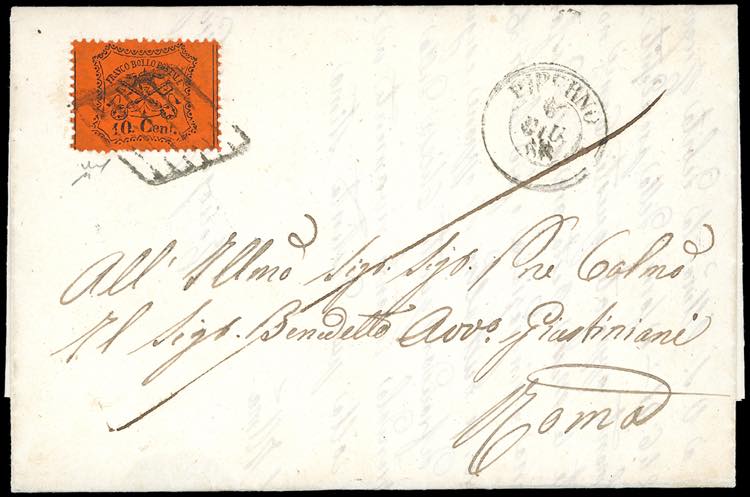 FRANCO BOLLO POSTALE
10 Cent.
PIPERNO
6
GIU
68
All' Illmõ Sigr. Sigr. Pne Colmõ
Il Sigr. Benedetto Avvo. Giustiniani
Roma